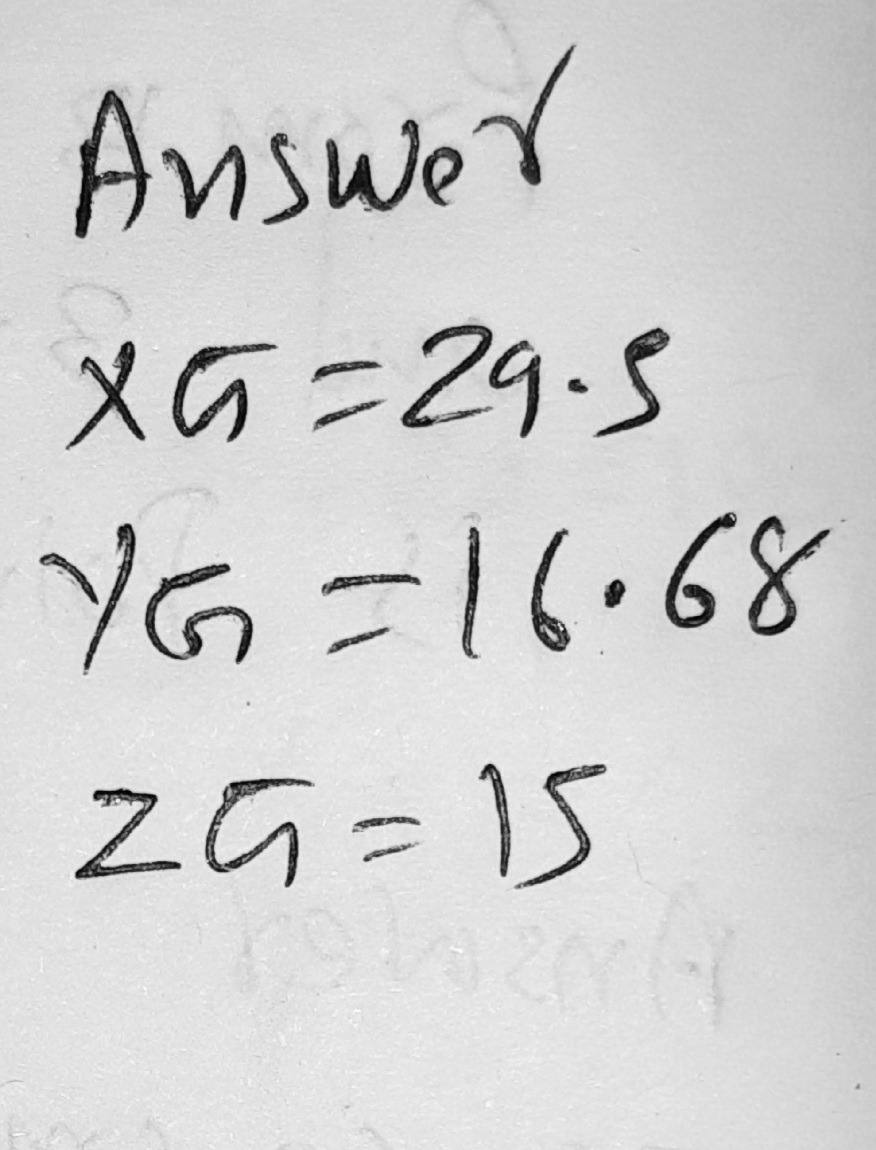 Answer
XG = 29.5
YG = 16.68
ZG = 15